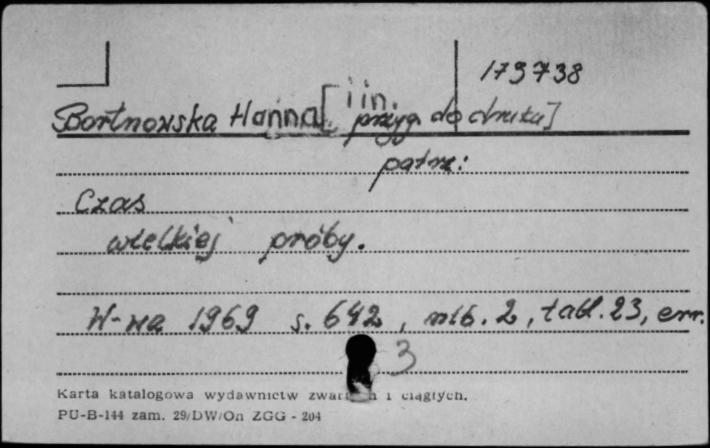 173738
Bortnowska Hanna [i in. przyg. do druku]
patrz:
Czas
wielkiej próby.
W-wa 1969 s. 642, nlb. 2, tabl. 23, err.
3
Karta katalogowa wydawnictw zwartych i ciągłych.
PU-B-144 zam. 29/DW/On ZGG - 204